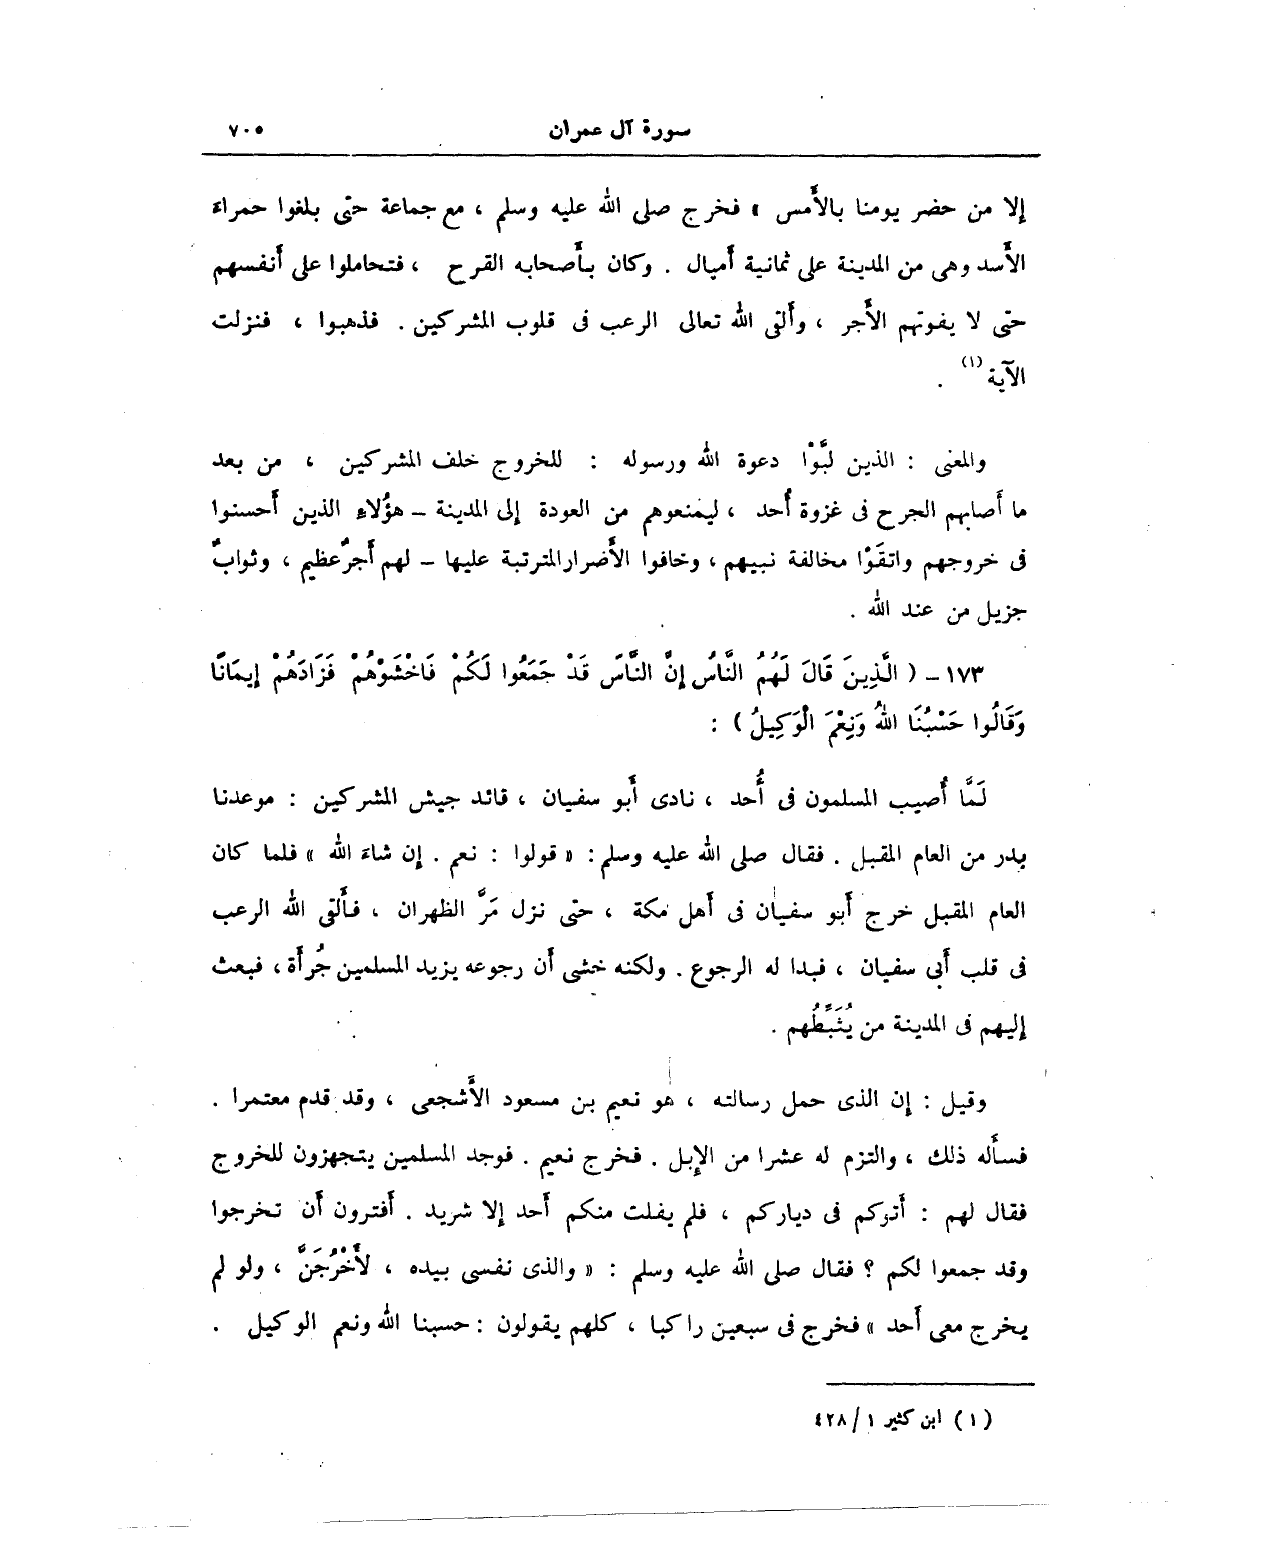 سورة آل عمران ٧٠٥
إلا من حضر يومنا بالأَمس » فخرج صلى الله عليه وسلم ، مع جماعة حتى بلغوا حمراء
الأَسد وهى من المدينة على ثمانية أَميال . وكان بأَصحابه القرح ، فتحاملوا على أَنفسهم
حتى لا يفوتهم الأَجر ، وأَلقى الله تعالى الرعب فى قلوب المشركين . فذهبوا ، فنزلت
الآية (١) .
والمعنى : الذين لبَّوْا دعوة الله ورسوله : للخروج خلف المشركين ، من بعد
ما أَصابهم الجرح فى غزوة أُحد ، ليمنعوهم من العودة إلى المدينة – هؤُلاءِ الذين أَحسنوا
فى خروجهم واتقَوْا مخالفة نبيهم ، وخافوا الأَضرار المترتبة عليها – لهم أَجرٌ عظيم ، وثوابٌ
جزيل من عند الله .
١٧٣ – ( الَّذِينَ قَالَ لَهُمُ النَّاسُ إِنَّ النَّاسَ قَدْ جَمَعُوا لَكُمْ فَاخْشَوْهُمْ فَزَادَهُمْ إِيمَانًا
وَقَالُوا حَسْبُنَا اللهُ وَنِعْمَ الْوَكِيلُ ) :
لَمَّا أُصيب المسلمون فى أُحد ، نادى أَبو سفيان ، قائد جيش المشركين : موعدنا
بدر من العام المقبل . فقال صلى الله عليه وسلم : « قولوا : نعم . إن شاءَ الله » فلما كان
العام المقبل خرج أَبو سفيان فى أَهل مكة ، حتى نزل مَرَّ الظهران ، فأَلقى الله الرعب
فى قلب أَبى سفيان ، فبدا له الرجوع . ولكنه خشى أَن رجوعه يزيد المسلمين جُرأَة ، فبعث
إليهم فى المدينة من يُثَبِّطُهم .
وقيل : إن الذى حمل رسالته ، هو نعيم بن مسعود الأَشجعى ، وقد قدم معتمرا .
فسأَله ذلك ، والتزم له عشرا من الإبل . فخرج نعيم . فوجد المسلمين يتجهزون للخروج
فقال لهم : أَتوكم فى دياركم ، فلم يفلت منكم أَحد إلا شريد . أَفترون أَن تخرجوا
وقد جمعوا لكم ؟ فقال صلى الله عليه وسلم : « والذى نفسى بيده ، لأَخْرُجَنَّ ، ولو لم
يخرج معى أَحد » فخرج فى سبعين راكبا ، كلهم يقولون : حسبنا الله ونعم الوكيل .
( ١ ) ابن كثير ١ / ٤٢٨